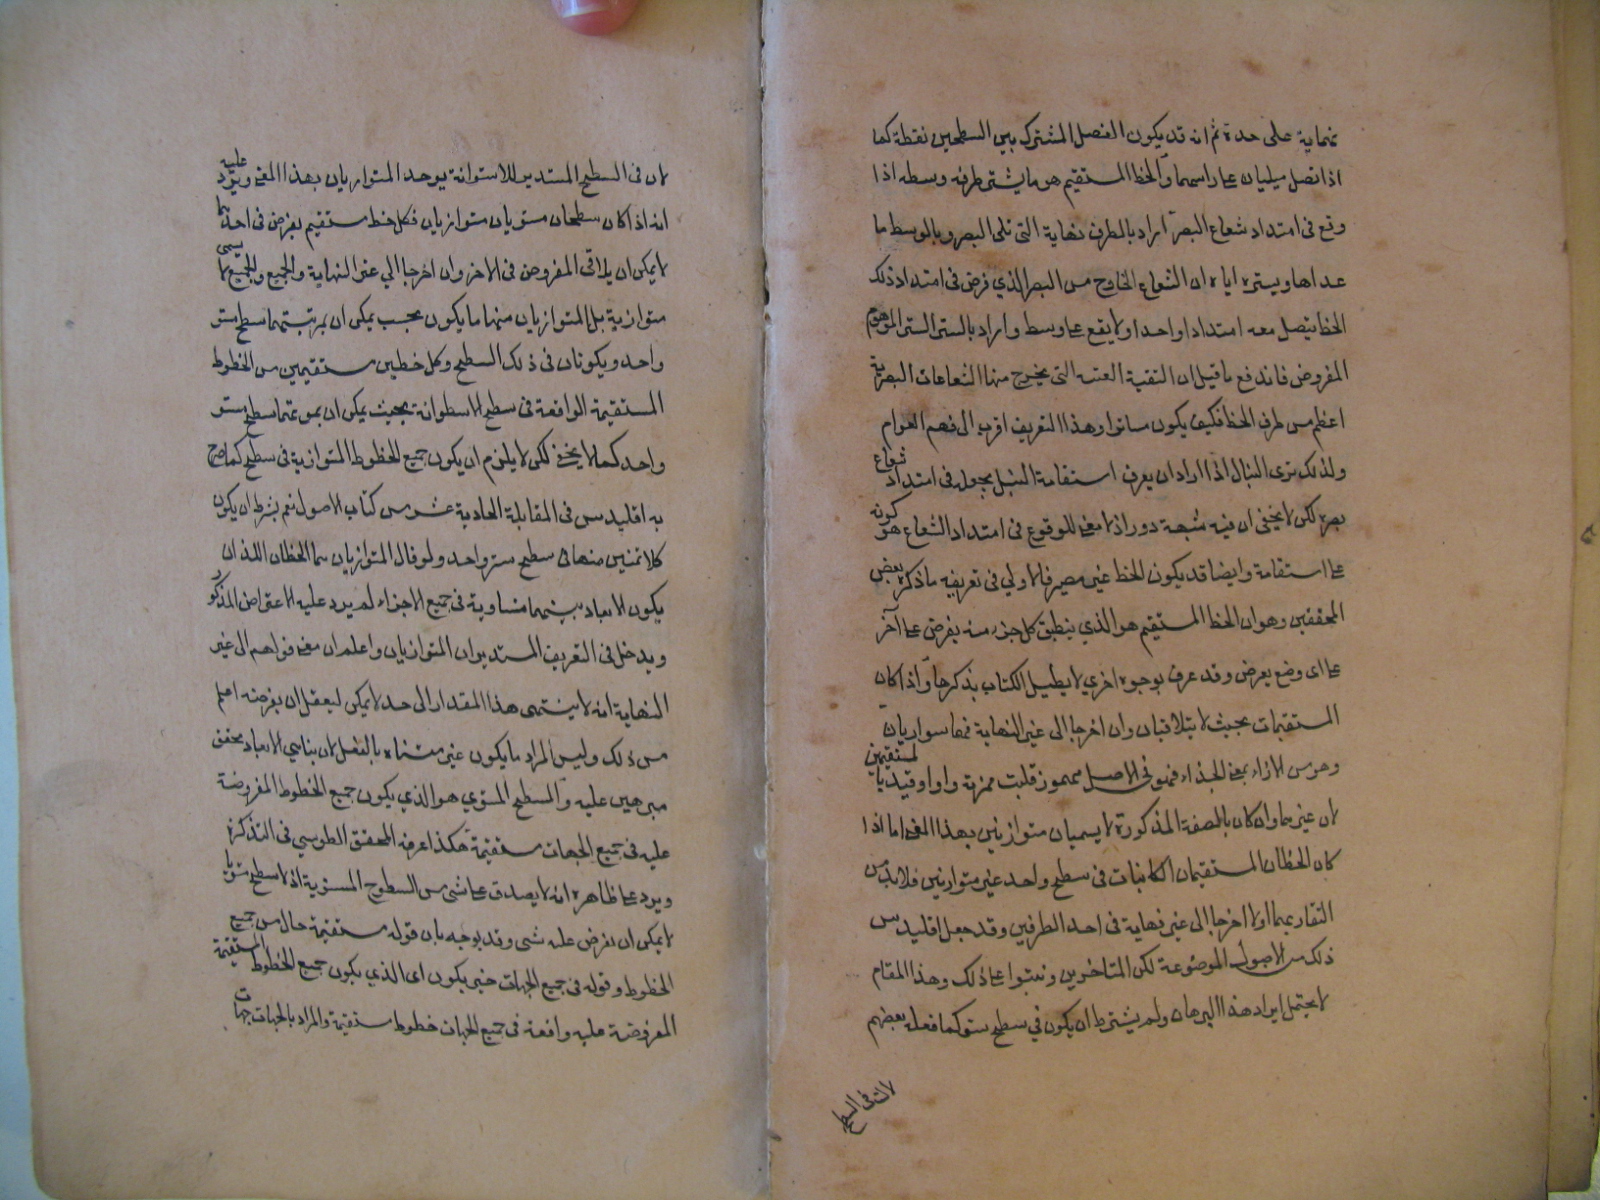 نهاية على حدة ثم انه قد يكون الفصل المشترك بين السطحين نقطة كما
اذا اتصل على راسهما والخط المستقيم هو ما يستر طرفه وسطه اذا
وقع في امتداد شعاع البصر اراد بالطرف نهاية التى تلى البصر وبالوسط ما
عداها ويستره اياه ان الشعاع الخارج من البصر الذي فرض في امتداد ذلك
الخط يتصل معه امتدادا واحدا ولا يقع على وسط واراد بالستر الستر الموهوم
المفروض فاندفع ما قيل ان الثقبة العنبية التى يخرج منها الشعاعات البصرية
اعظم من طرف الخط فكيف يكون ساترا وهذا التعريف اقرب الى فهم العوام
ولذلك ترى النبال اذا اراد ان يعرف استقامة النبل يجعله في امتداد شعاع
بصره لكن لا يخفى ان فيه شبهة دور اذ لا معنى للوقوع في امتداد الشعاع هو كونه
على استقامة وايضا قد يكون الخط غير مبصر فالاولي في تعريفه ما ذكره بعض
المحققين وهو ان الخط المستقيم هو الذي ينطبق كل جزء منه يفرض على آخر
على اى وضع يفرض وقد عرف بوجوه اخري لا يطيل الكتاب بذكرها واذا كان
المستقيمات بحيث لا يتلاقيان وان اخرجا الى غير النهاية فهما متوازيان
وهو من الازاء بمعنى الحذاء فهو في الاصل مهموز قلبت همزة واوا وقيد بالمستقيمين
لان غيرهما وان كان بالصفة المذكورة لا يسميان متوازيين بهذا المعنى اما اذا
كان الخطان المستقيمان الكائنات في سطح واحد غير متوازيين فلا بد من
التقاربهما اولا اخرجا الى غير نهاية في احد الطرفين وقد جعل اقليدس
ذلك من الاصول الموضوعة لكن المتاخرين على ذلك وهذا المقام
لا يحتمل ايراد هذا البرهان ولم يشترط ان يكون في سطح مستو كما فعله بعضهم
لان في السطح
لان في السطح المستدير للاستوانة يوجد المتوازيان بهذا المعنى ويرد عليه
انه اذا كان سطحان مستويان متوازيان فكل خط مستقيم يفرض في احدهما
لا يمكن ان يلاقى المفروض في الاخر وان اخرجا الي غير النهاية والجميع لا يسمى
متوازية بل المتوازيان منها ما يكون بحسب يمكن ان يمر بينهما سطح مستو
واحد ويكونان في ذلك السطح وكل خطين مستقيمين من الخطوط
المستقيمة الواقعة في سطح الاسطوانة بحيث يمكن ان يمر عليهما سطح مستو
واحد كما لا يخفى لكن لا يلزم ان يكون جميع الخطوط المتوازية في سطح كما صرح
به اقليدس في المقابلة الحادية عشر من كتاب الاصول نعم يشرط ان يكون
كل اثنين منها في سطح مستو واحد ولو قال المتوازيان هما الخطان اللذان
يكون الابعاد بينهما متساوية في جميع الاجزاء لم يرد عليه الاعتراض المذكور
ويدخل في التعريف المستديران المتوازيان واعلم ان معنى قولهم الى غير
النهاية انه لا ينتهى هذا المقدار الى حد لا يمكن للعقل ان يفرضه اعظم
من ذلك وليس المراد ما يكون غير متناه بالفعل لان تناهي الابعاد محقق
مبرهن عليه والسطح المستوي هو الذي يكون جميع الخطوط المفروضة
عليه في جميع الجهات مستقيمة هكذا عرفه المحقق الطوسي في التذكرة
ويرد على ظاهره انه لا يصدق على شئ من السطوح المستوية اذ لا سطح مستويا
لا يمكن ان يفرض عليه شئ وقد يوجه بان قوله مستقيمة حال من جميع
الخطوط وقوله في جميع الجهات خبر يكون اى الذي يكون جميع الخطوط المستقيمة
المفروضة عليه واقعة في جميع الجهات خطوط مستقيمة والمراد بالجهات جهات